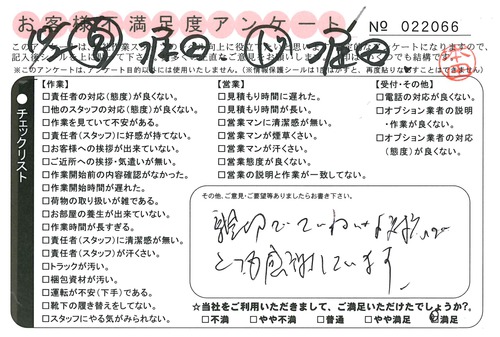 お客様不満足度アンケート
№ 022066
チェックリスト
【作業】
□責任者の対応(態度)が良くない。
□他のスタッフの対応(態度)が良くない。
□作業を見ていて不安がある。
□責任者(スタッフ)に好感が持てない。
□お客様への挨拶が出来ていない。
□ご近所への挨拶・気遣いが無い。
□作業開始前の内容確認がなかった。
□作業開始時間が遅れた。
□荷物の取り扱いが雑である。
□お部屋の養生が出来ていない。
□作業時間が長すぎる。
□責任者(スタッフ)に清潔感が無い。
□責任者(スタッフ)が汗くさい。
□トラックが汚い。
□梱包資材が汚い。
□運転が不安(下手)である。
□靴下の履き替えをしてない。
□スタッフにやる気がみられない。
【営業】
□見積もり時間に遅れた。
□見積もり時間が長い。
□営業マンに清潔感が無い。
□営業マンが煙草くさい。
□営業マンが汗くさい。
□営業態度が良くない。
□営業の説明と作業が一致してない。
【受付・その他】
□電話の対応が良くない。
□オプション業者の説明
・作業が良くない。
□オプション業者の対応
(態度)が良くない。
その他、ご意見・ご要望等ありましたらお書き下さい。
とても感謝しています。
☆当社をご利用いただきまして、ご満足いただけたでしょうか?。
□不満 □やや不満 □普通 □やや満足 □満足